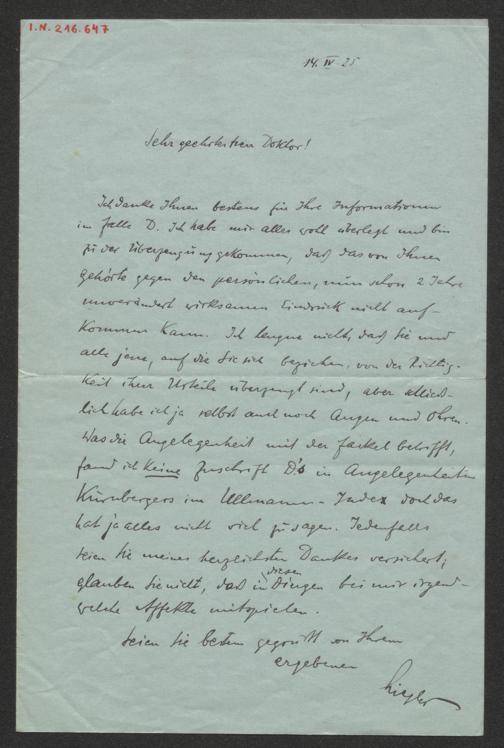 I.N. 216.647
14. IV. 25
Sehr geehrtester Herr Doktor!
Ich danke Ihnen bestens für Ihre Informationen
im Falle D. Ich habe mir alles wohl überlegt und bin
zu der Überzeugung gekommen, daß das von Ihnen
gehörte gegen den persönlichen, nun schon 2 Jahre
unverändert wirksamen Eindruck nicht auf-
kommen kann. Ich leugne nicht, daß Sie und
alle jene, auf die Sie sich beziehen, von der Richtig-
keit ihrer Urteile überzeugt sind, aber schließ-
lich habe ich ja selbst auch noch Augen und Ohren.
Was die Angelegenheit mit der Fackel betrifft,
fand ich keine Zuschrift D's in Angelegenheiten
Kürnbergers im Ullmann-Index doch das
hat ja alles nicht viel zu sagen. Jedenfalls
seien Sie meines herzlichsten Dankes versichert;
glauben Sie nicht, daß in diesen Dingen bei mir irgend-
welche Affekte mitspielen.
Seien Sie bestens gegrüßt von Ihrem
ergebenen